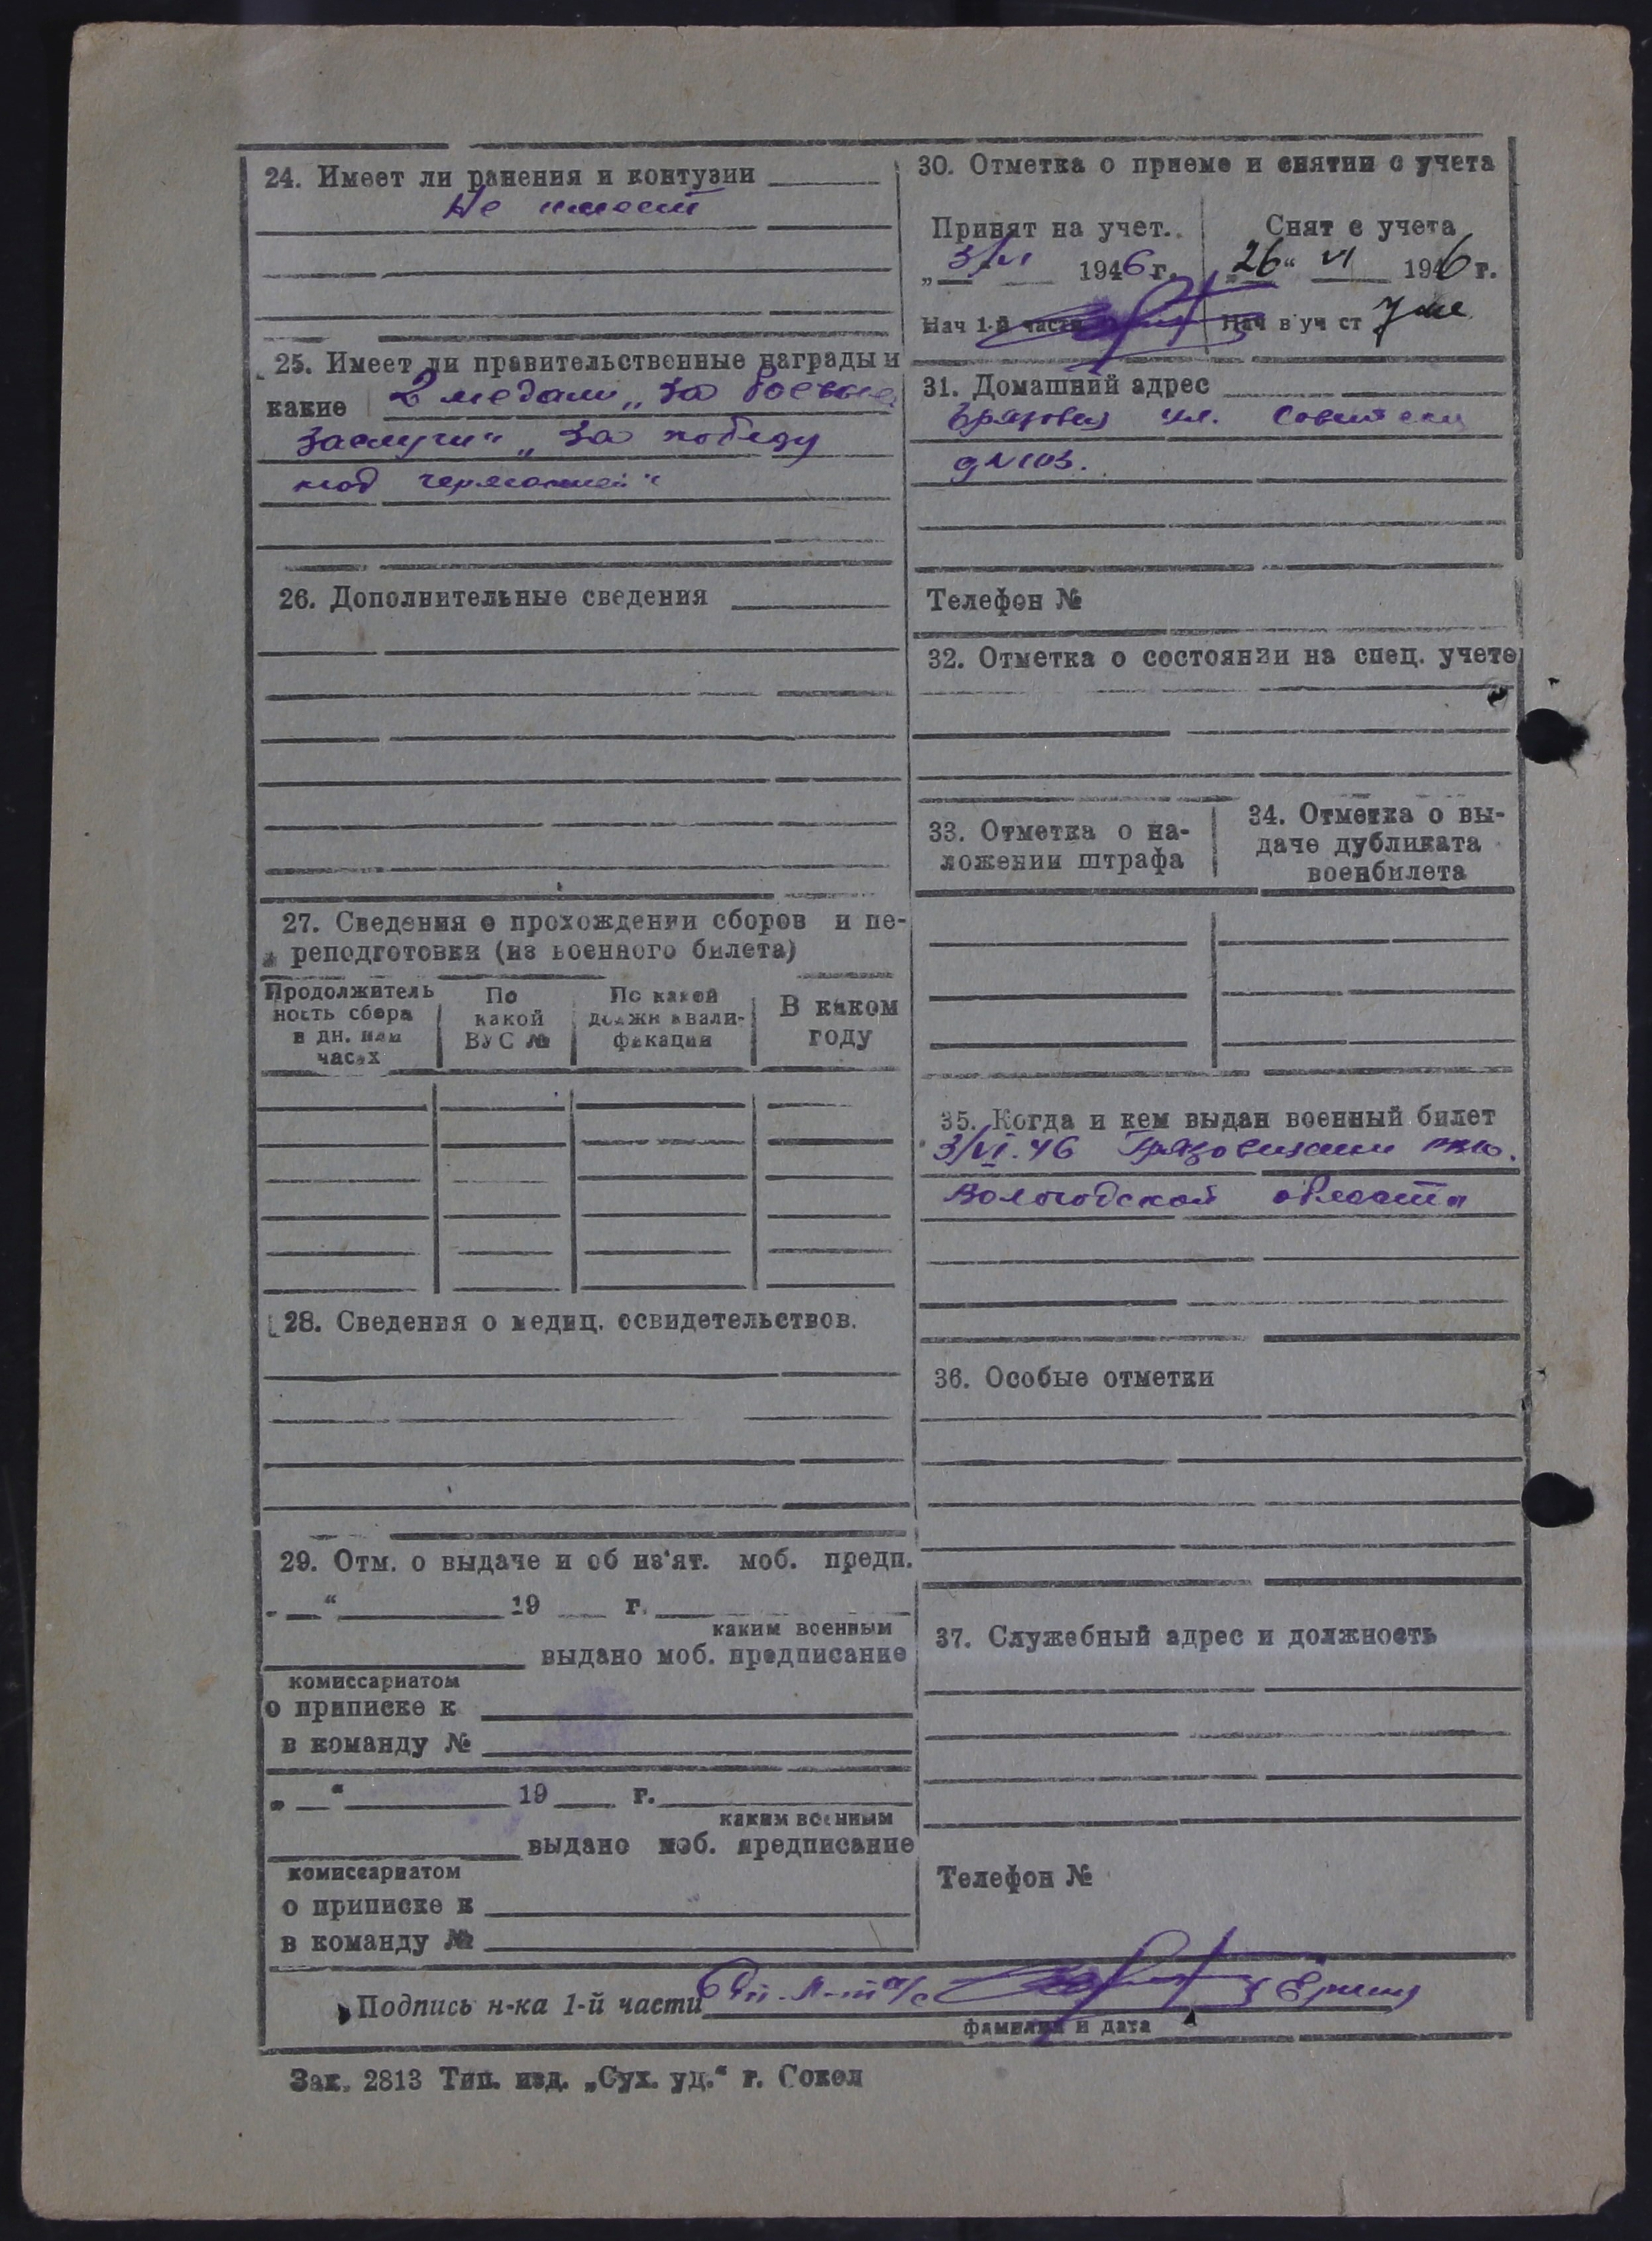 24. Имеет ли ранения и контузии
Не имеет
25. Имеет ли правительственные награды и
какие 2 медали „За боевые
заслуги" „За победу
над германией"
26. Дополнительные сведения
27. Сведения о прохождении сборов и пе-
реподготовки (из военного билета)
Продолжитель
ность сбора
в дн. или
часах
По
какой
ВУС №
По какой
должн квали-
фикации
В каком
году
28. Сведения о медиц. освидетельствов.
29. Отм. о выдаче и об из'ят. моб. предп.
„ “ 19 г.
каким военным
выдано моб. предписание
комиссариатом
о приписке к
в команду №
„ “ 19 г.
каким военным
выдано моб. предписание
комиссариатом
о приписке к
в команду №
30. Отметка о приеме и снятии с учета
Принят на учет..
„3/VI 1946 г.
Нач 1-й части
Снят с учета
„26“ VI 1946 г.
Нач в уч ст
31. Домашний адрес
Грязовец ул. Советская
д №103.
Телефон №
32. Отметка о состоянии на спец. учете
33. Отметка о на-
ложении штрафа
34. Отметка о вы-
даче дубликата
военбилета
35. Когда и кем выдан военный билет
3/VI.46 Грязовецким РВК.
Вологодской области
36. Особые отметки
37. Служебный адрес и должность
Телефон №
Подпись н-ка 1-й части
фамилия и дата
Зак. 2813 Тип. изд. „Сух. уд.“ г. Сокол